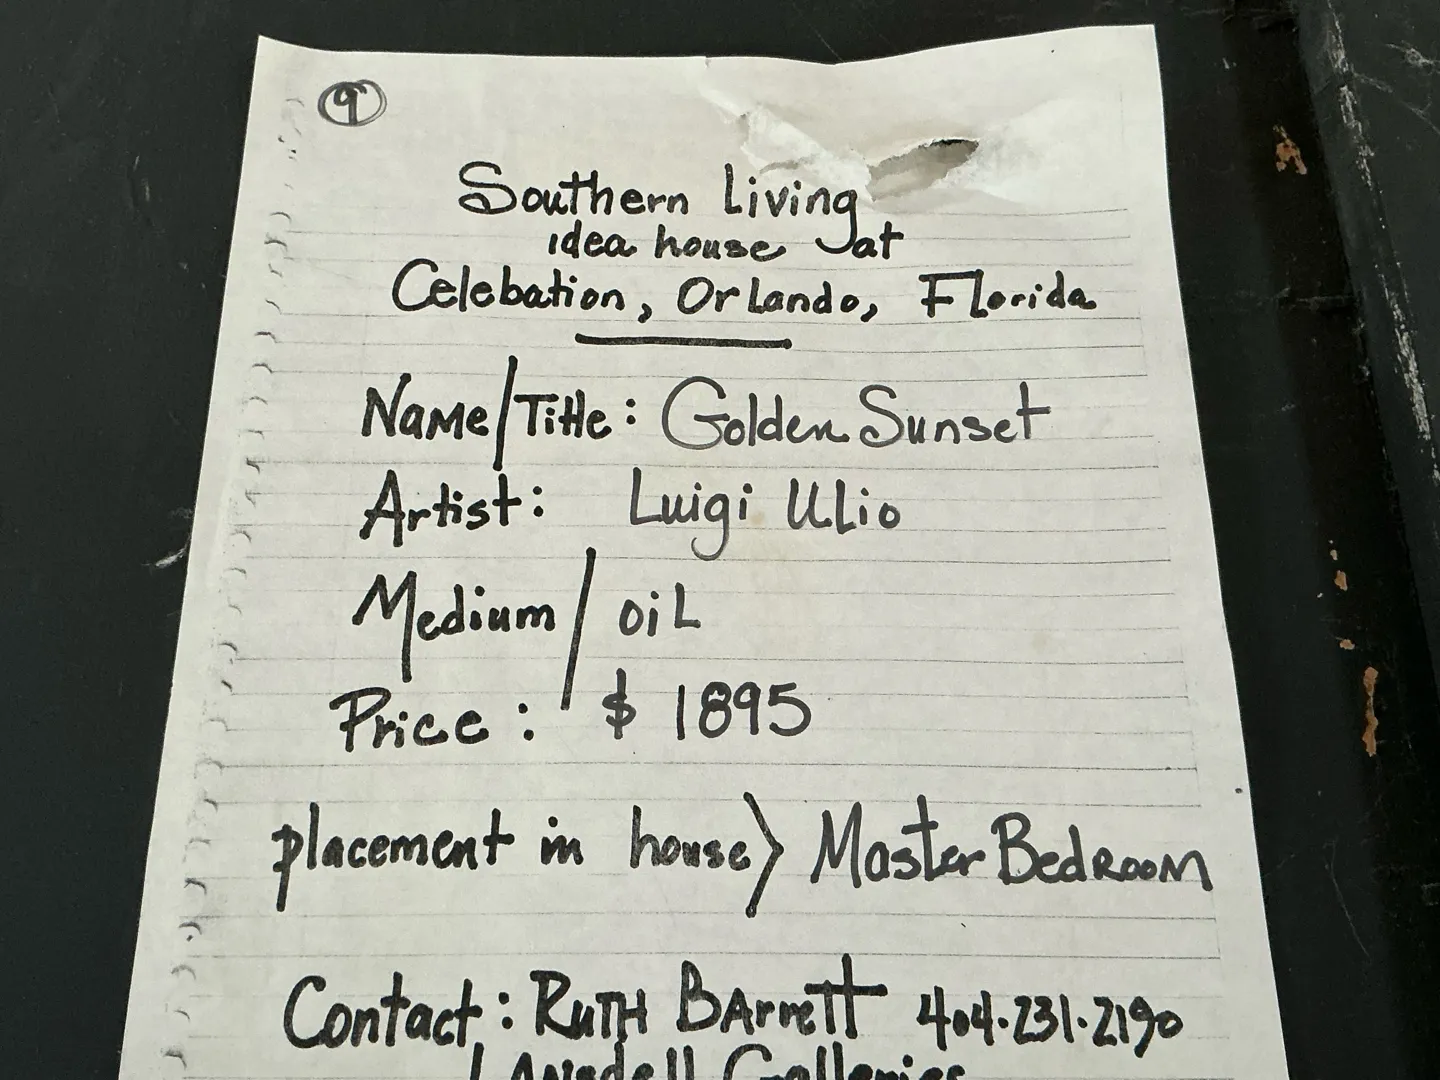 9
Southern Living
idea house at
Celebation, Orlando, Florida
Name/Title: Golden Sunset
Artist: Luigi Ulio
Medium/ oil
Price: $ 1895
placement in house> Master Bedroom
Contact: Ruth Barrett 404.231.2190
Lansdell Galleries